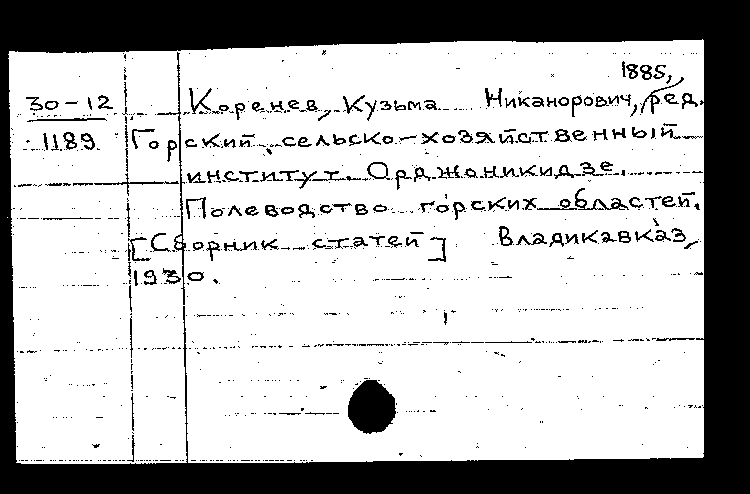 1885,
30-12 Коренев, Кузьма Никанорович, ред.
1189 Горский сельско-хозяйственный
институт. Орджоникидзе.
Полеводство горских областей.
[Сборник статей] Владикавказ,
1930.